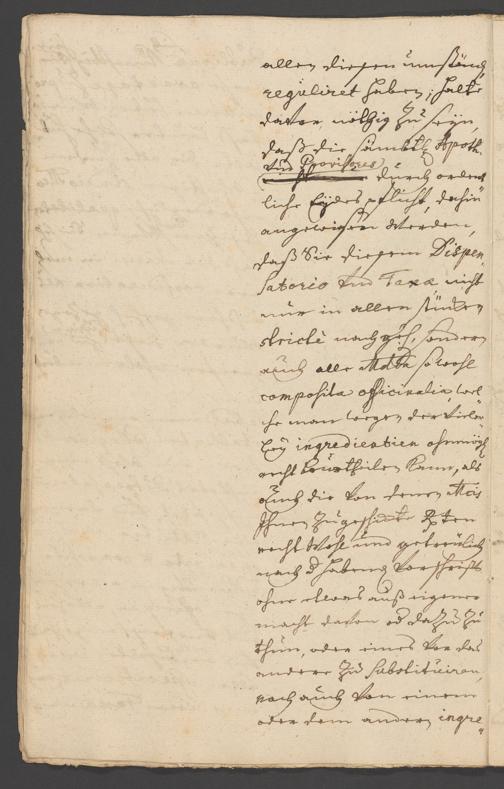 allen diesen umständ
reguliret haben; halte
davor nöthig zu seyn,
daß die sämbtl. Apoth.
und Provisores durch ordent
liche Eydes pflicht, dahin
angewiesen werden,
daß Sie diesem Dispen
satorio und Taxæ nicht
nur in allen stücken
strictè nachgeh, sondern
auch alle sowohl
composita officinalia, wel
che man wegen der vielen
ingredientien ohnmögl
recht beurtheilen kann, als
auch die von denen
Ihnen zugeschickte
recht wohl und getreulich
nach habend vorschrifft
ohne etwas auß eigener
macht davon od dazu zu
thun, oder eines vor das
andere zu substituiren,
noch auch von einem
oder dem andern ingre